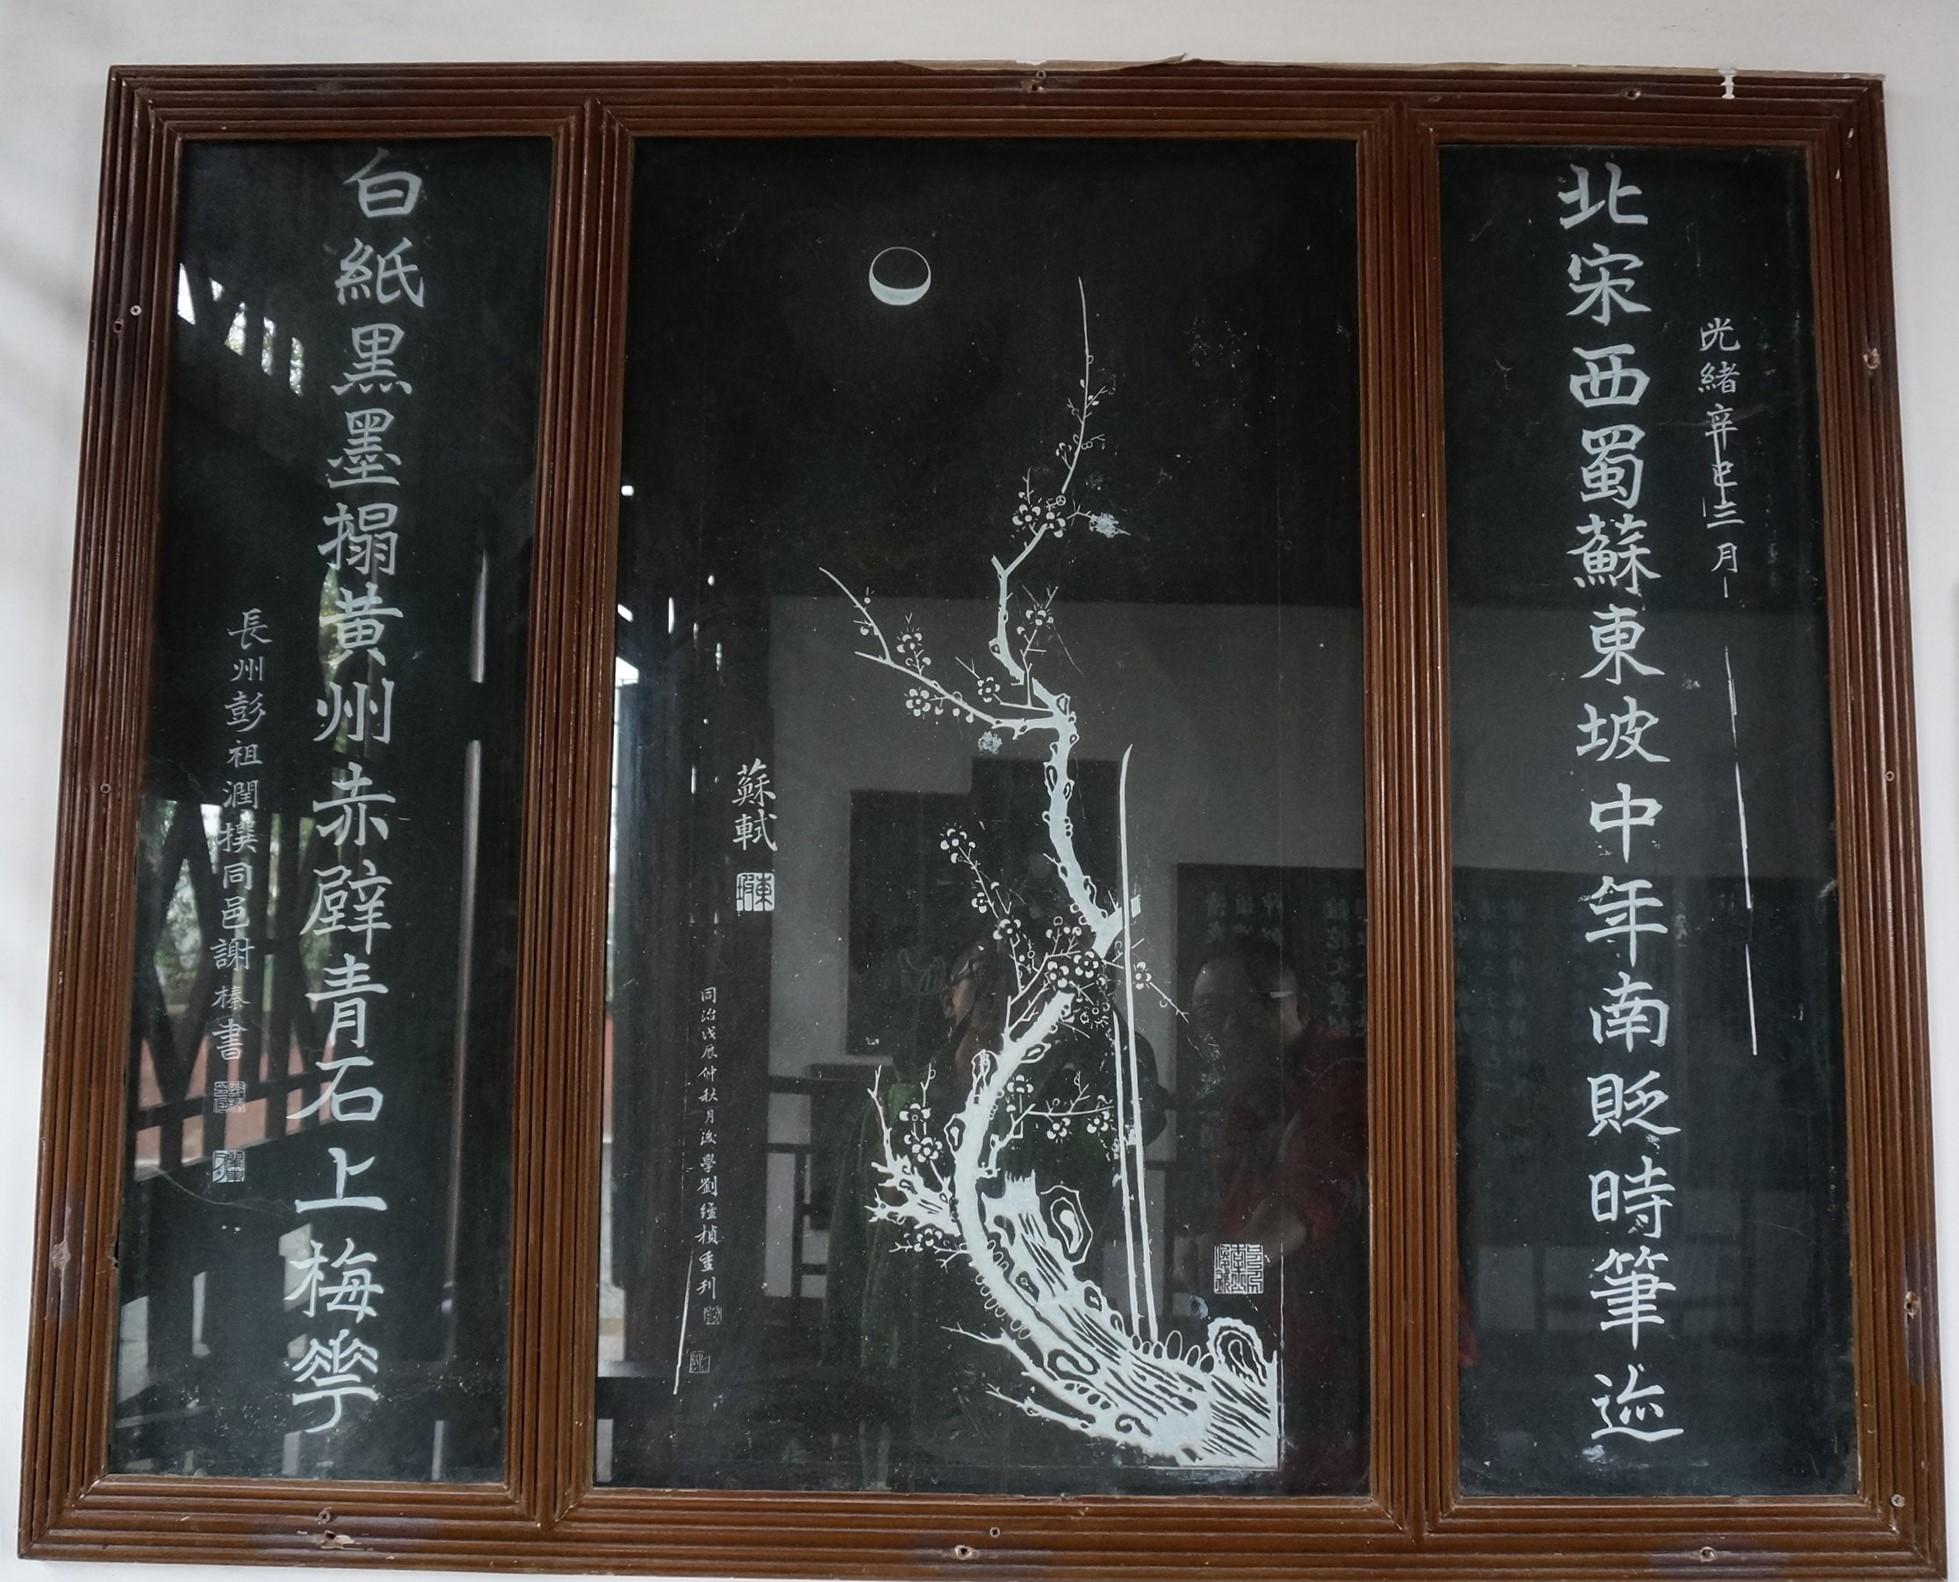 光緒辛巳三月
北宋西蜀蘇東坡中年南貶時筆迹
蘇軾
東坡
同治戊辰仲秋月後學劉維楨重刊
白紙黑墨搨黃州赤壁青石上梅花
長州彭祖潤撰同邑謝榛書